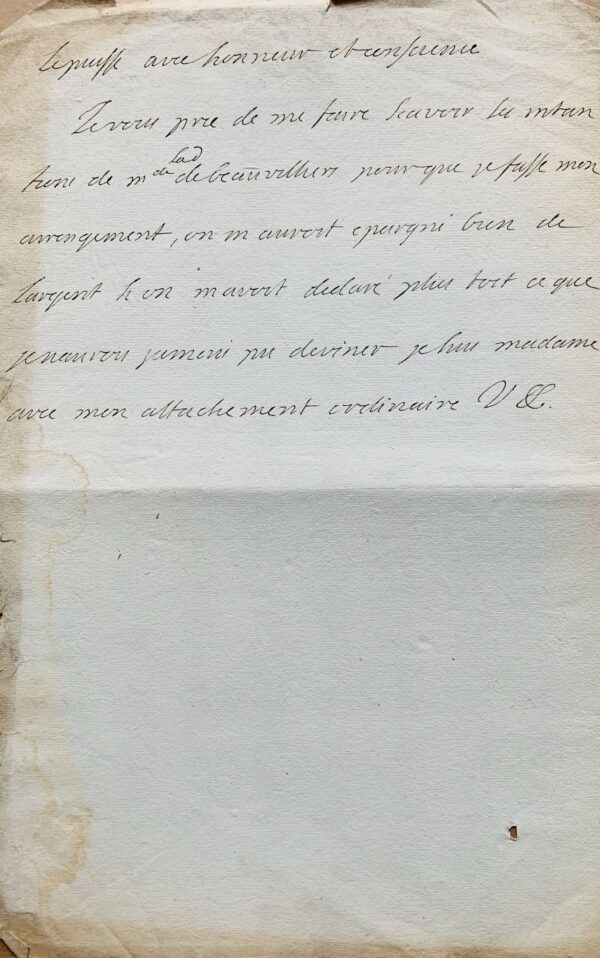 le puisse avec honneur et conscience
Je vous prie de me faire scavoir les intan
tions de mde Lad de beauvilliers pour que je fasse mon
arrengement, on m auroit epargné bien de
largent si on m avoit declaré plus tost ce que
je naurois jamais pu deviner je suis madame
avec mon attachement ordinaire V &c.